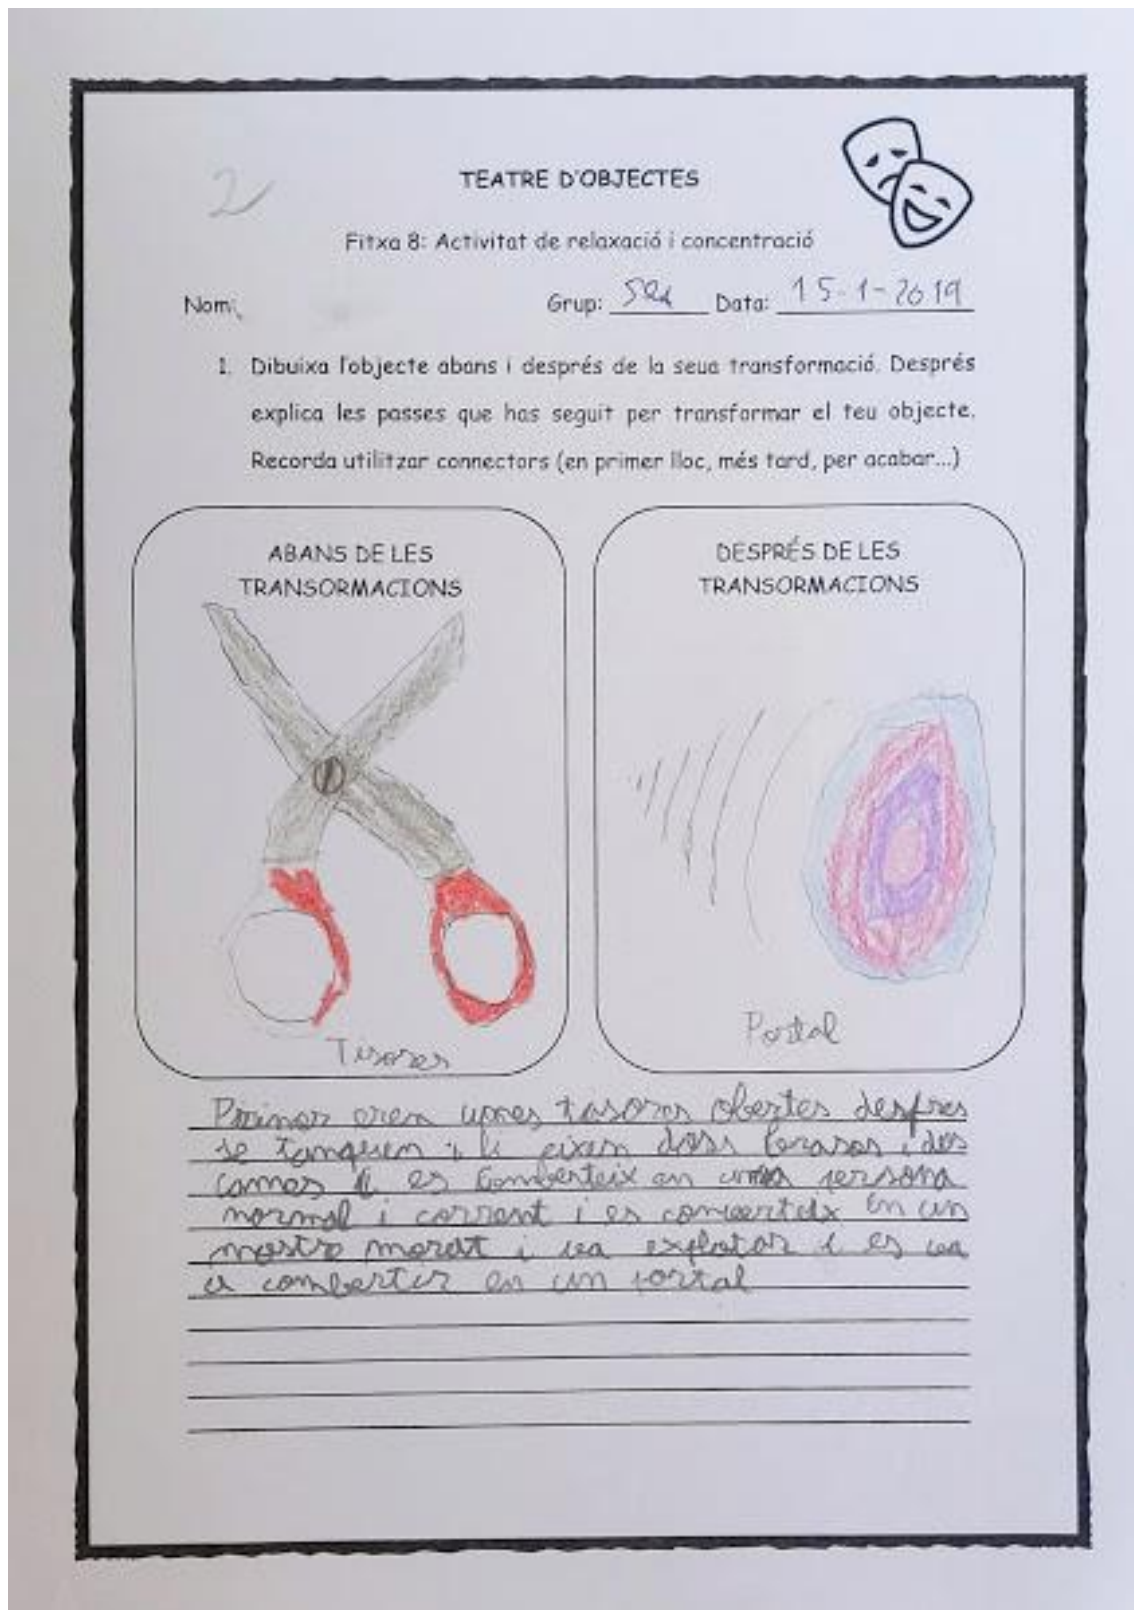 2
TEATRE D'OBJECTES
Fitxa 8: Activitat de relaxació i concentració
Nom: Grup: Data: 15-1-2019
1. Dibuixa l'objecte abans i després de la seua transformació. Després
explica les passes que has seguit per transformar el teu objecte.
Recorda utilitzar connectors (en primer lloc, més tard, per acabar...)
ABANS DE LES
TRANSORMACIONS
DESPRÉS DE LES
TRANSORMACIONS
Tisores
Portal
Primer eren unes tasores obertes despres
se tanquen i li eixen doss brasos i dos
cames i es comberteix en una persona
normal i corrent i es converteix En un
mostre morat i va explotar i es va
a combertir en un portal